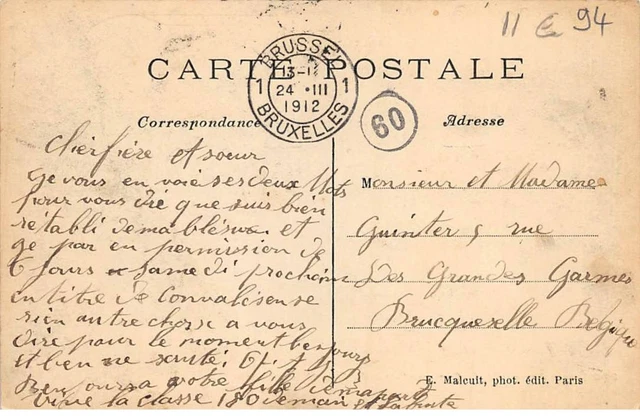 11 e 94
CARTE POSTALE
BRUSSEL
1 13-1 1
24 · III
1912
BRUXELLES
60
Correspondance
Adresse
Cher frère et soeur
ge vous en voie ses deux Mots
pour vous dire que suis bien
rétabli de ma blésure et
ge par en permission de
6 jours same di prochain
en titre de Convalésense
rien autre chosse a vous
dire pour le moment
et bene santé
votre
Vive la classe
Monsieur et Madame
Guinter 5 rue
Des Grandes Carmes
Brucqueselle Belgique
E. Malcuit, phot. édit. Paris